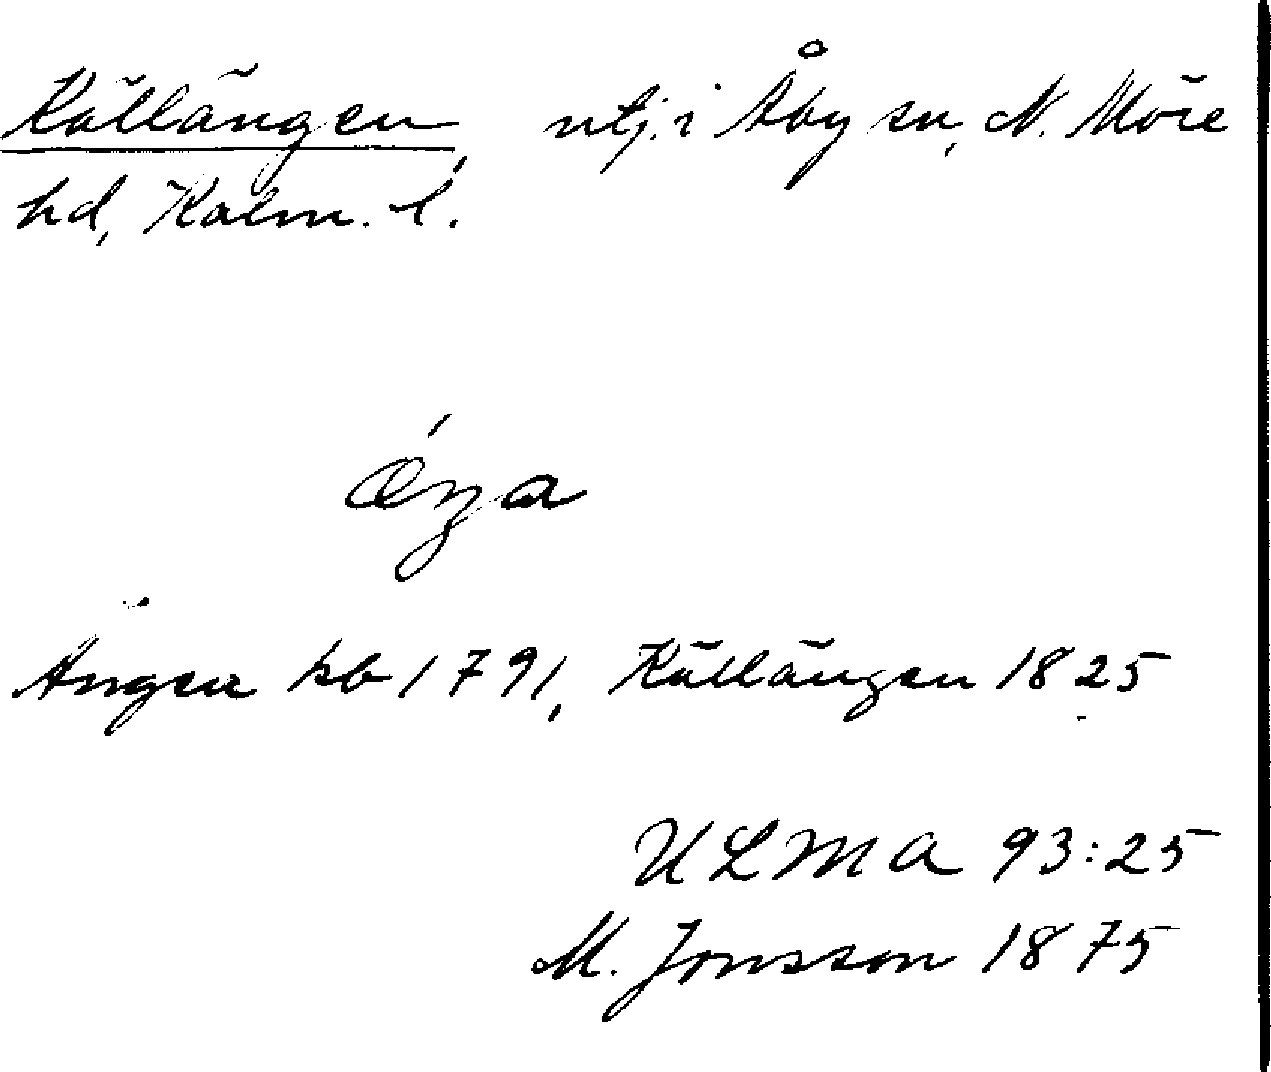 Källängen, utj. i Åby sn, N. Möre
hd, Kalm. l.
Ängen kb 1791, Källängen 1825
ULMA 93:25
M. Jonsson 1875